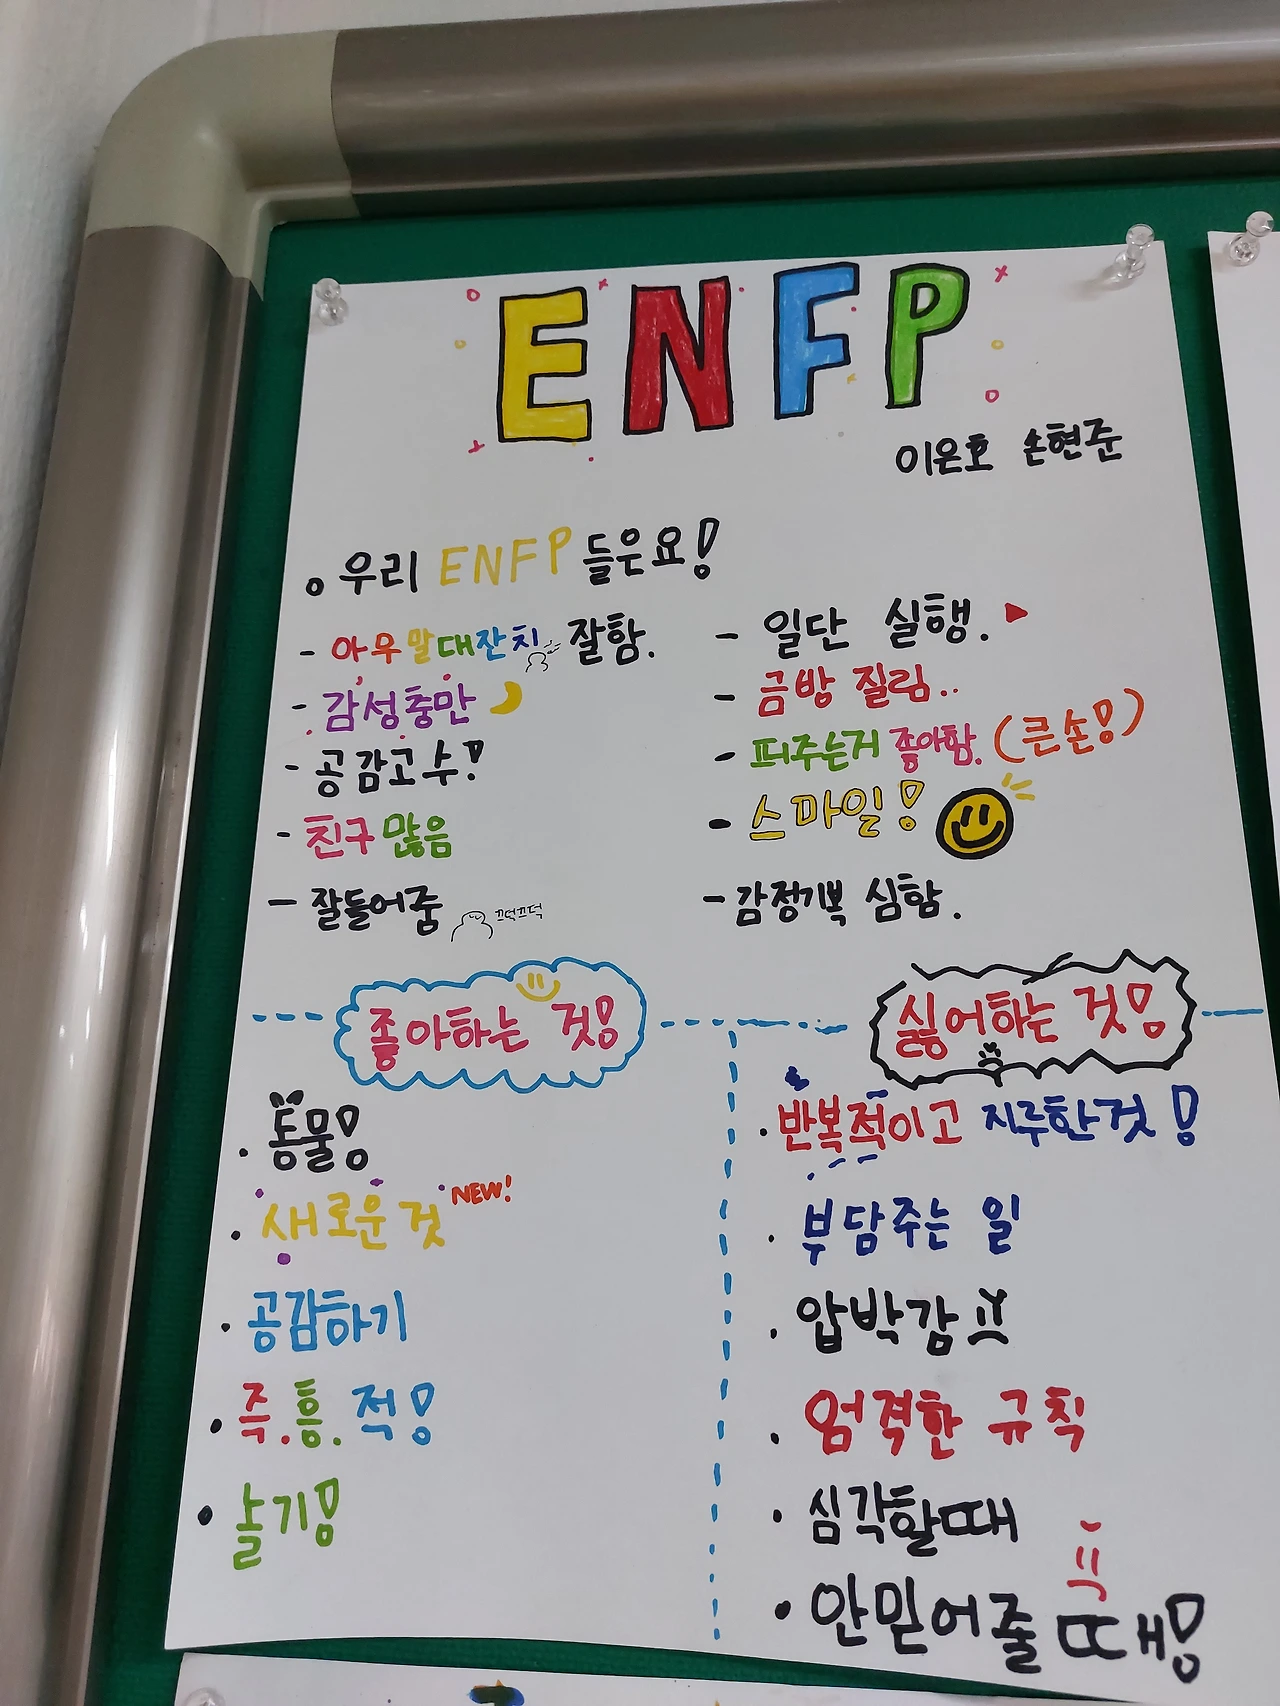 ENFP
이은호 손현준
우리 ENFP들은요!
- 아무말대잔치 잘함.
- 감성충만
- 공감고수!
- 친구 많음
- 잘들어줌 끄덕끄덕
- 일단 실행.
- 금방 질림..
- 퍼주는거 좋아함. (큰손!)
- 스마일!
- 감정기복 심함.
좋아하는 것!
· 동물!
· 새로운 것 NEW!
· 공감하기
· 즉.흥.적!
· 놀기!
싫어하는 것!
· 반복적이고 지루한것!
· 부담주는 일
· 압박감
· 엄격한 규칙
· 심각할때
· 안믿어줄 때!